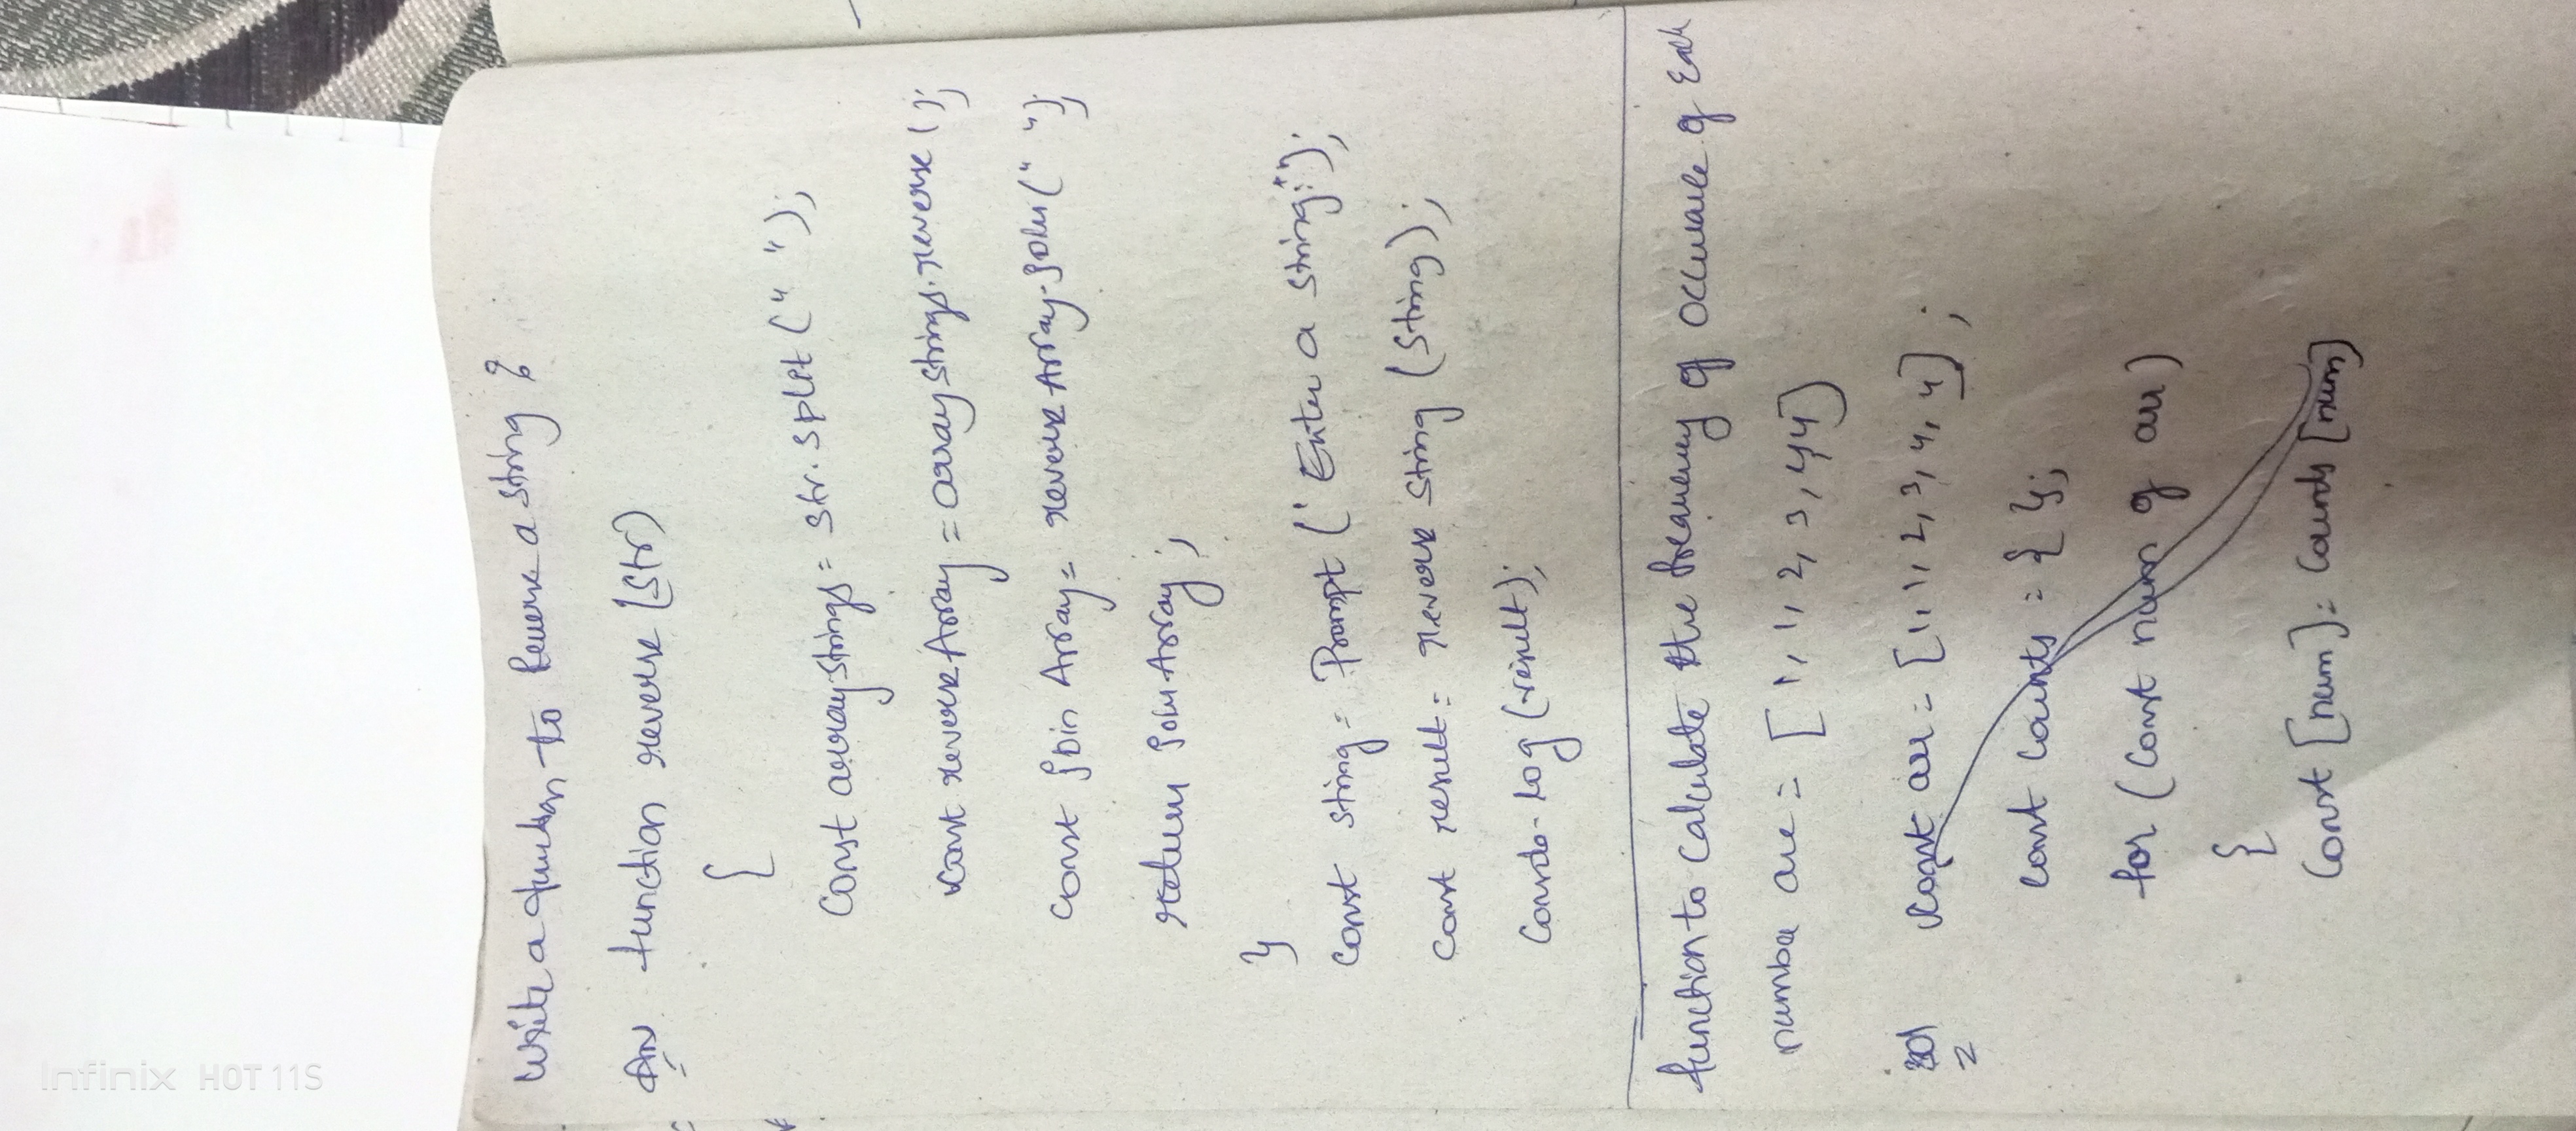 Write a function to Reverse a string ?
An function reverse (str)
{
const arraystrings = str.split(" ");
const reverseArray = arraystrings.reverse();
const join Array = reverseArray.join(" ");
return joinArray;
}
const string = Prompt (' Enter a string:");
const result = reverse string (string);
Console.log (result);
function to calculate the frequency of occurance of Each
number arr = [1, 1, 2, 3, 4, 4]
sol const arr = [1, 1, 2, 3, 4, 4];
const counts = { };
for (const num of arr)
{
Const [num] = counts [num]
Infinix HOT 11S